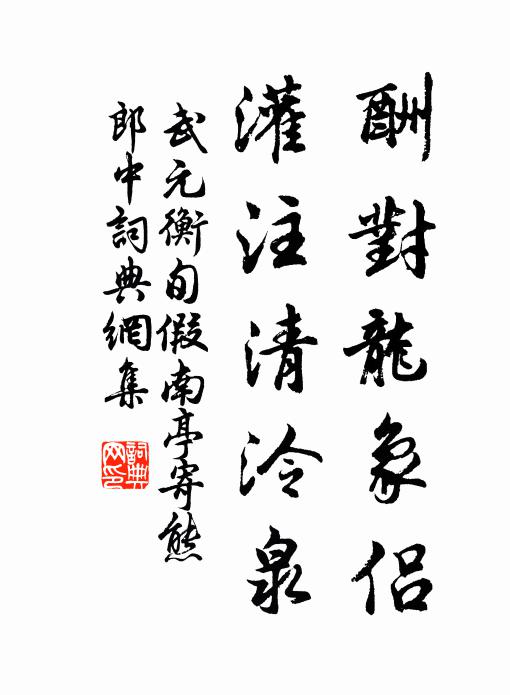 酬對龍象侶
灌注清泠泉
武元衡旬假南亭寄熊
郎中詞典網集
詞典
网印